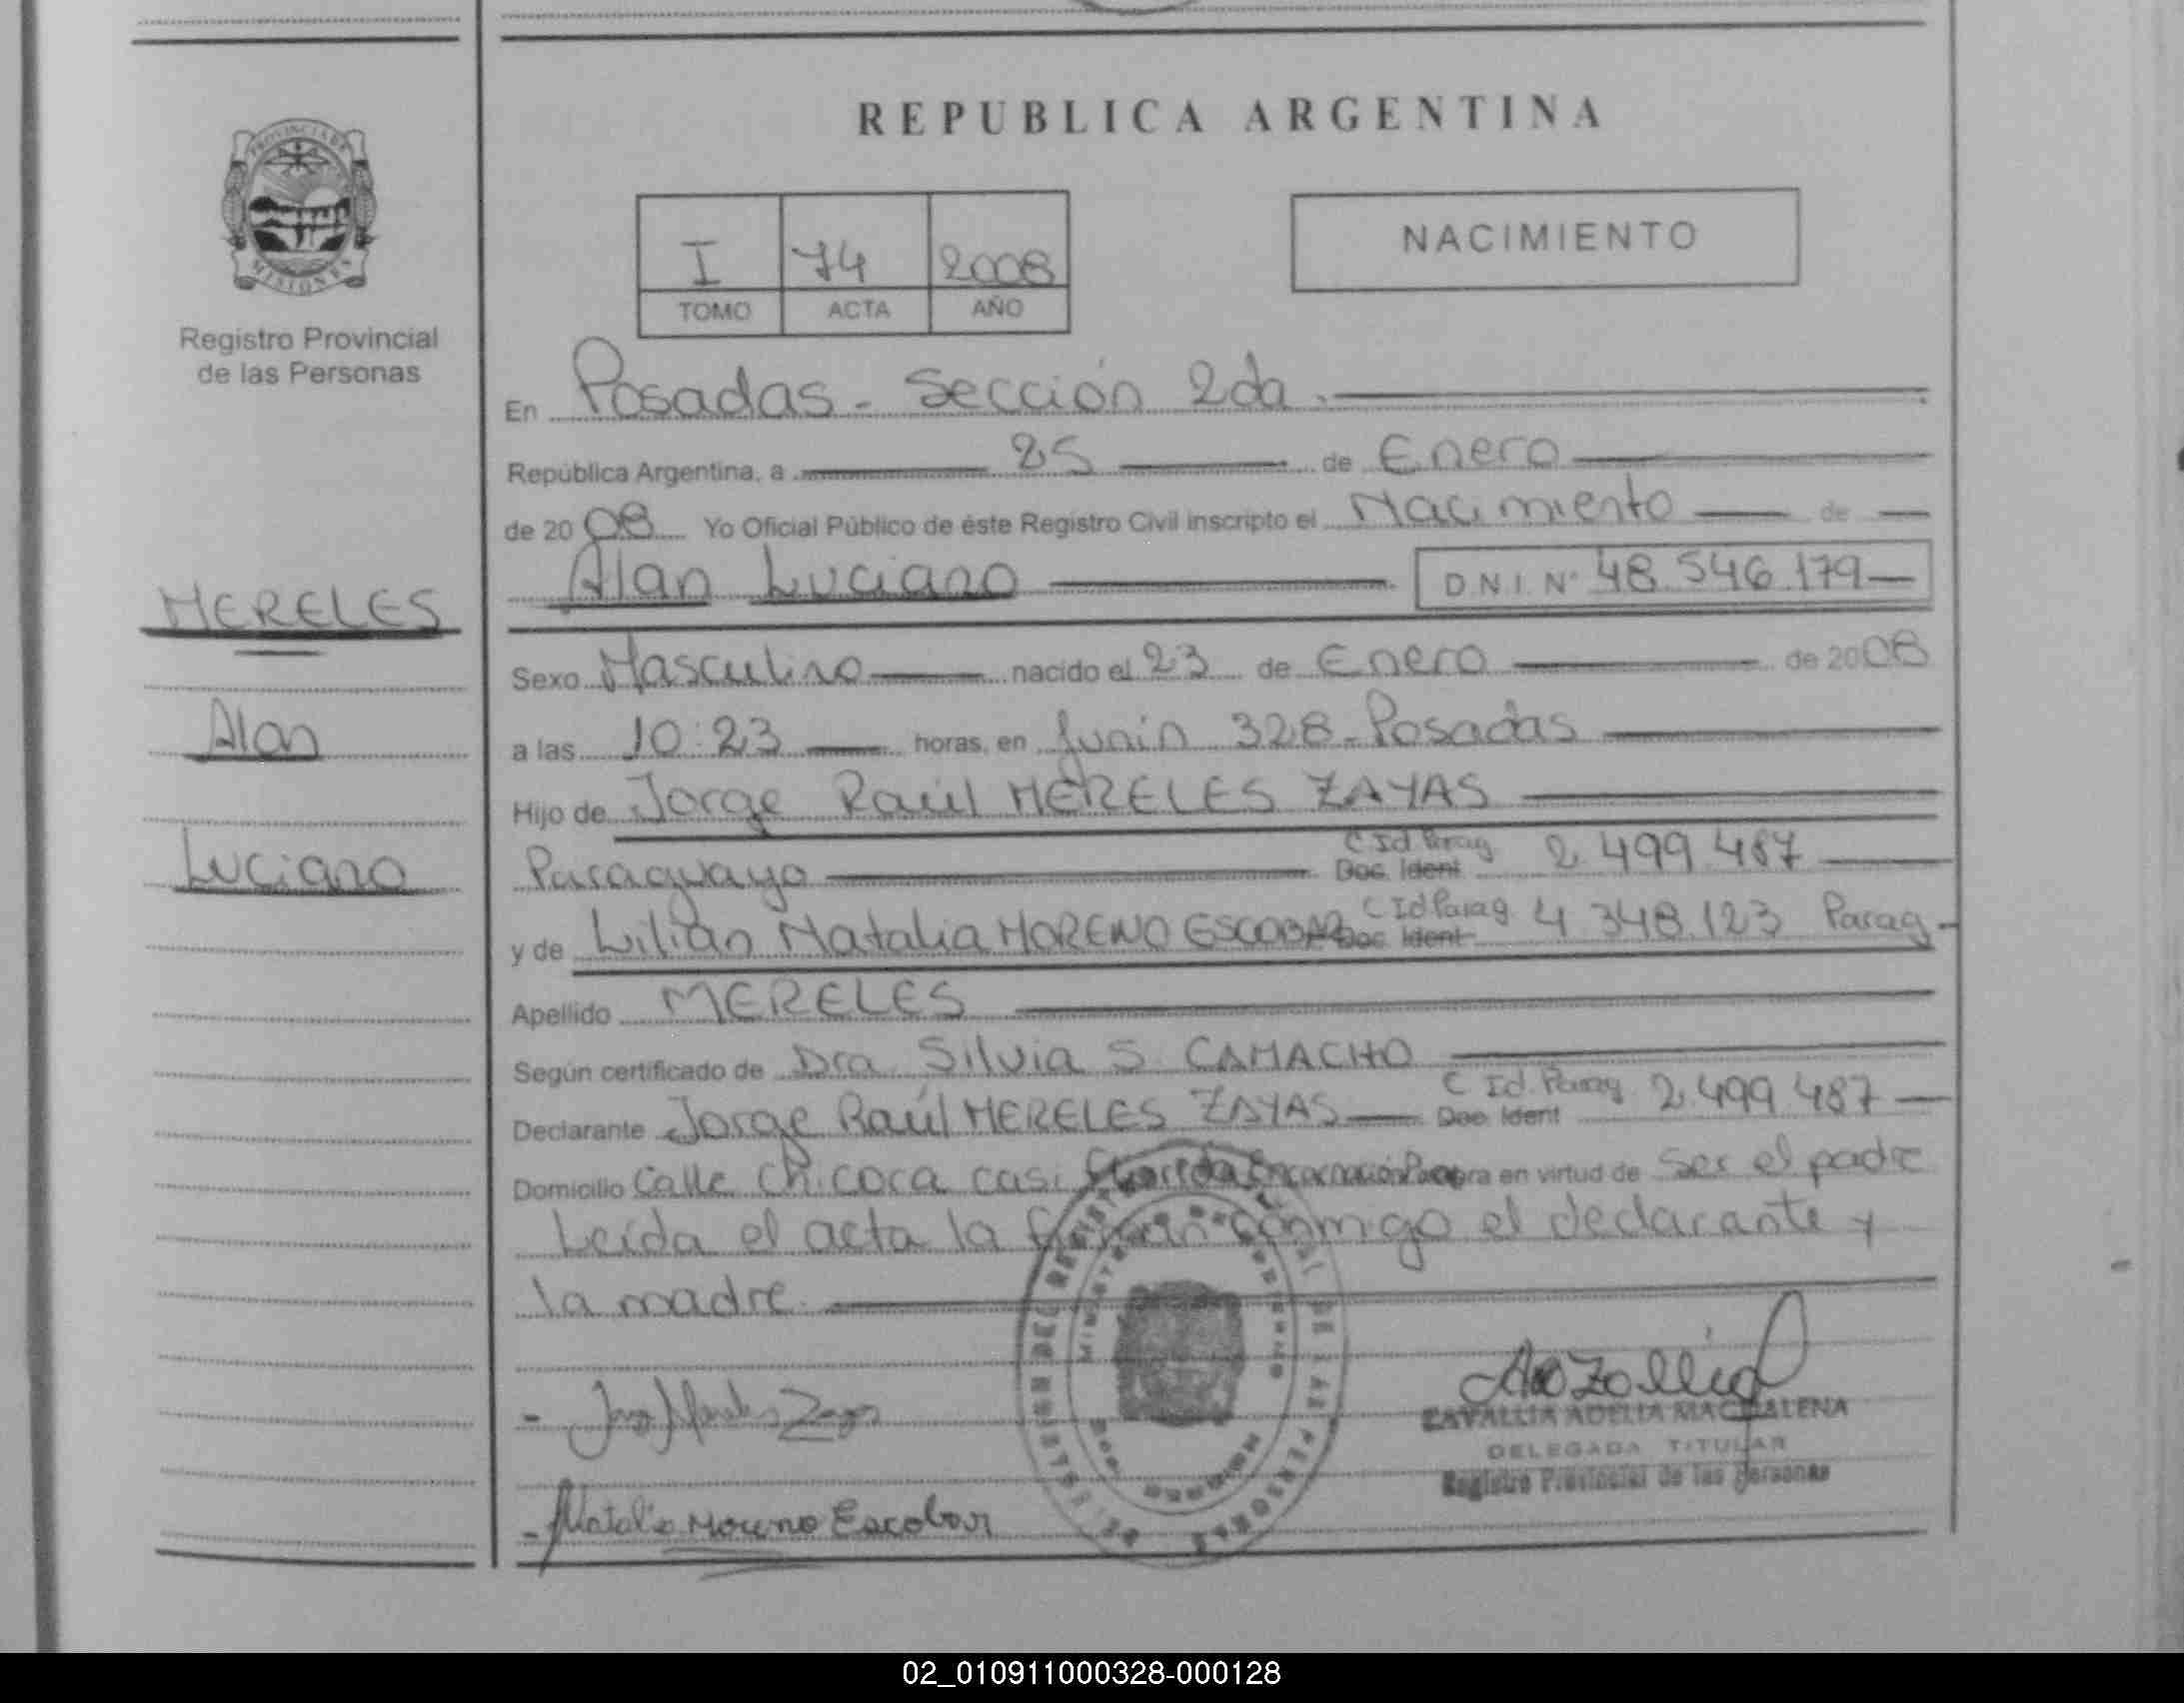 REPUBLICA ARGENTINA
PROVINCIA DE
MISIONES
Registro Provincial
de las Personas
I 74 2008
TOMO ACTA AÑO
NACIMIENTO
En Posadas - Sección 2da.
República Argentina, a 25 de Enero
de 2008 Yo Oficial Público de éste Registro Civil inscripto el Nacimiento de
Alan Luciano D.N.I. Nº 48.546.179
MERELES
Alan
Luciano
Sexo Masculino nacido el 23 de Enero de 2008
a las 10:23 horas, en Junín 328 - Posadas
Hijo de Jorge Raúl MERELES ZAYAS
Paraguayo C Id Parag Doc. Ident 2.499.487
y de Lilian Natalia MORENO ESCOBAR C Id Parag Doc. Ident 4.348.123 Parag
Apellido MERELES
Según certificado de Dra. Silvia S. CAMACHO
Declarante Jorge Raúl MERELES ZAYAS C Id. Parag Doc. Ident 2.499.487
Domicilio Calle Chicora casi Encarnación obra en virtud de ser el padre
Leída el acta la firman conmigo el declarante y
la madre
- Jorge Mereles Zayas
ZAVALLIA ADELIA MAGDALENA
DELEGADA TITULAR
Registro Provincial de las Personas
- Natalia Moreno Escobar
02_010911000328-000128